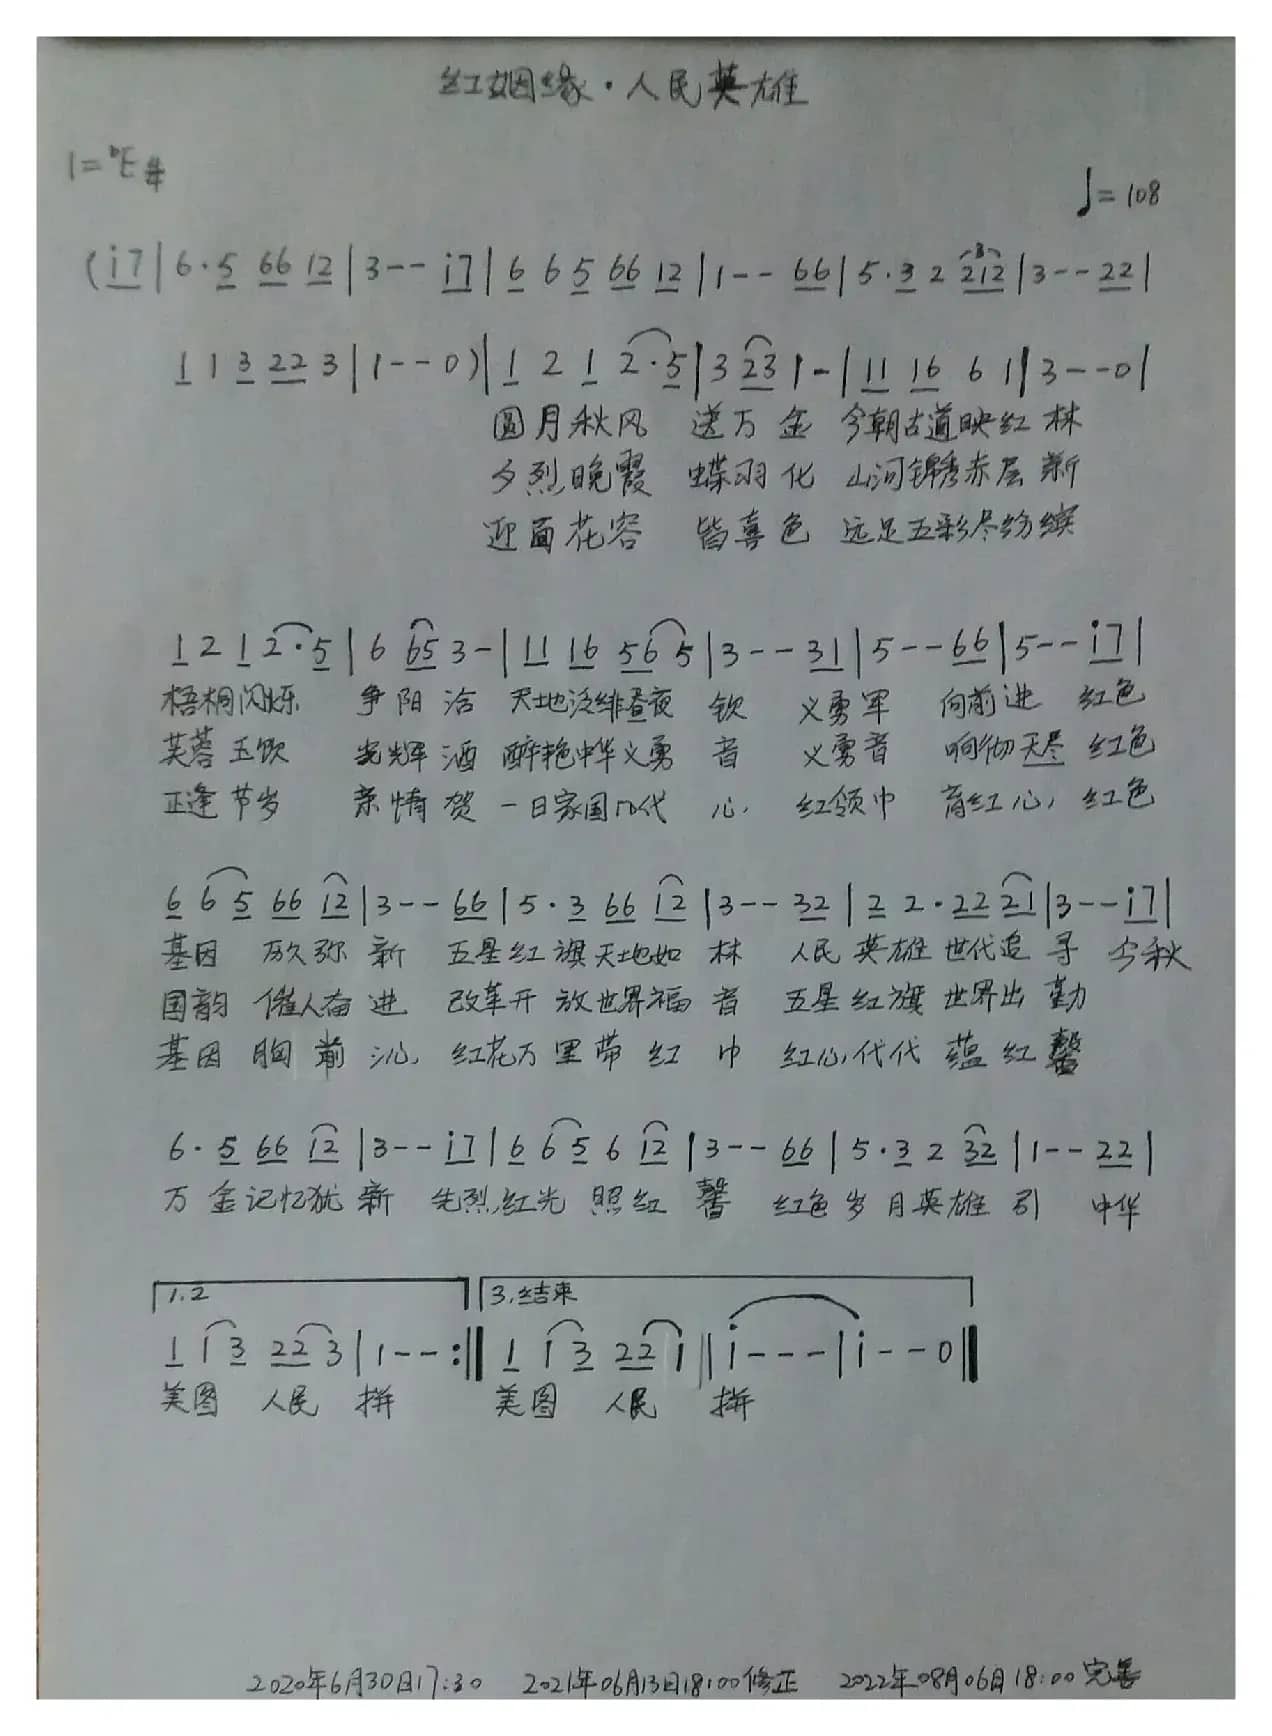 红姻缘·人民英雄
1=♭E 4/4
♩=108
(i7|6·5 66 12|3--i7|6 6 5 66 12|1--66|5·3 2 212|3--22|
1 1 3 22 3|1--0)|1 2 1 2·5|3 23 1-|11 16 6 1|3--0|
圆月秋风 送万金 今朝古道映红林
夕烈晚霞 蝶羽化 山河锦秀赤层新
迎面花容 皆喜色 远足五彩尽纷缤
1 2 1 2·5|6 65 3-|11 16 56 5|3--31|5--66|5--i7|
梧桐闪烁 争阳洽 天地泛绯昼夜 钦 义勇军 向前进 红色
芙蓉玉饮 光辉酒 醉艳中华义勇 音 义勇者 响彻天尽 红色
正逢节岁 亲情贺 一日家国几代 心, 红领巾 育红心, 红色
6 6 5 66 12|3--66|5·3 66 12|3--32|2 2·22 21|3--i7|
基因 历久弥新 五星红旗天地如林 人民英雄世代追寻 今秋
国韵 催人奋进 改革开放世界福音 五星红旗世界出勤
基因胸前沁, 红花万里带红巾 红心,代代蕴红馨
6·5 66 12|3--i7|6 6 5 6 12|3--66|5·3 2 32|1--22|
万金记忆犹新 先烈,红光照红馨 红色岁月英雄引 中华
1.2 3.结束
1 1 3 22 3|1--:‖ 1 1 3 22 1‖i---|i--0‖
美图 人民 拼 美图 人民 拼
2020年6月30日17:30 2021年06月13日18:00修正 2022年08月06日18:00完善